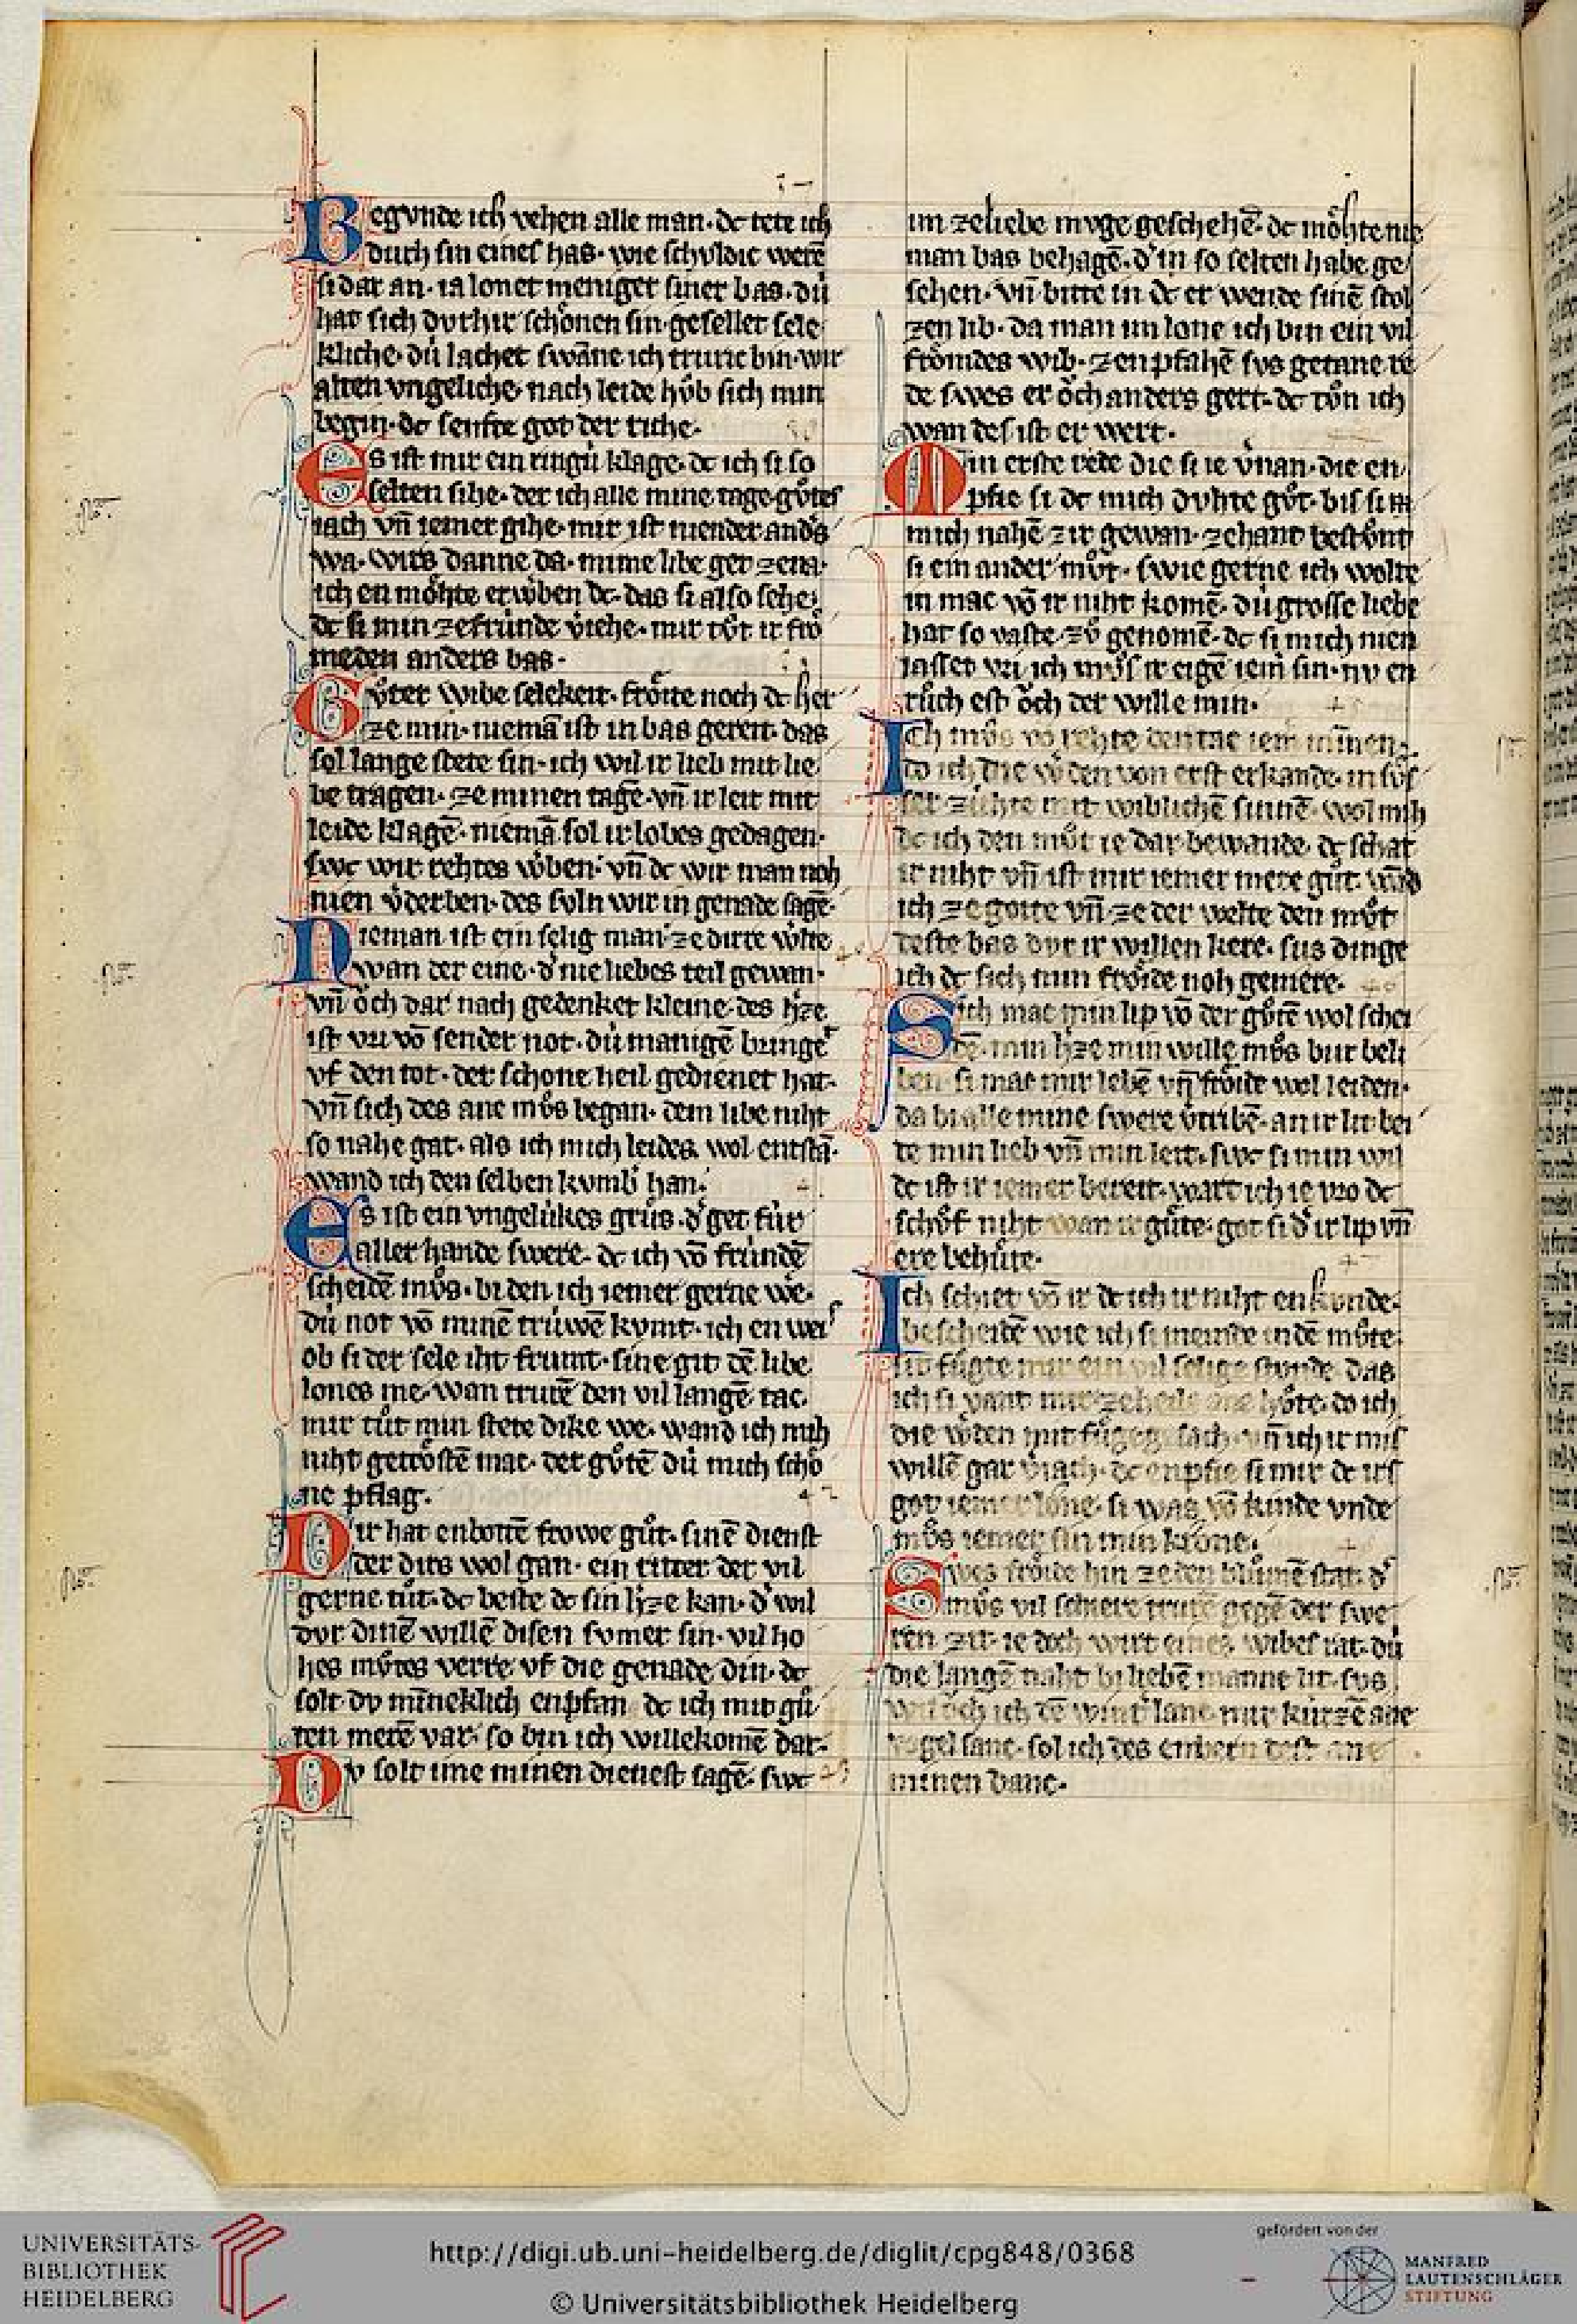 Begvnde ich vehen alle man· dc tete ich
dvrch sin eines has· wie schvldic werē
si dar an· ia lonet meniger siner bas· dú
hat sich dvrh ir schoͤnen sin· gesellet sele
kliche· dú lachet swāne ich trvric bin· wir
alten vngeliche· nach leide hv̊b sich min
begin· dc senfte got der riche·
Es ist mir ein ringú klage· dc ich si so
selten sihe· der ich alle mine tage gv̊tes
iach vn̄ iemer gihe· mir ist niender anders
wa· wirs danne da· mime libe get ze na·
ich en moͤhte erwͤben dc· das si also sehe·
dc si min ze frúnde v̓iehe· mir tv̊t ir froͤ
meden anders bas·
Gv̊ter wibe selekeit· froͤite noch dc her
ze min· niemā ist in bas gereit· das
sol lange stete sin· ich wil ir lieb mit lie
be tragen· ze minen tagē· vn̄ ir leit mit
leide klagē· niemā sol ir lobes gedagen·
swc wir rehtes wͤben· vn̄ dc wir man noh
nien v̓derben· des svln wir in genade sagē·
Nieman ist ein selig man· ze dirre wͤlte
wan der eine· d̓ nie liebes teil gewan·
vn̄ oͮch dar nach gedenket kleine· des h̓ze
ist vri vō sender not· dú manigē bringet
vf den tot· der schone heil gedienet hat·
vn̄ sich des ane mv̊s began· dem libe niht
so nahe gat· als ich mich leides wol entstā·
wand ich den selben kvmb̓ han·
Es ist ein vngelúkes grv̊s· d̓ get fúr
aller hande swere· dc ich vō frúndē
scheidē mv̊s· bi den ich iemer gerne we·
dú not vō minē trúwē kvmt· ich en weis
ob si der sele iht frumt· sine git dē libe
lones me· wan trurē den vil langē tac
mir tůt min stete dike we· wand ich mih
niht getroͤstē mac· der gv̊tē dú mich scho
ne pflag·
Dir hat enbottē frowe gůt· sinē dienst
der dirs wol gan· ein ritter der vil
gerne tůt· dc beste dc sin h̓ze kan· d̓ wil
dvr dinē willē disen svmer sin· vil ho
hes mv̊tes verre vf die genade din· dc
solt dv minneklich enpfan dc ich mit gů
ten merē var· so bin ich willekomē dar·
Dv solt ime minen dienest sagē· swc
im ze liebe mvge geschehē· dc moͤhte nie
man bas behagē· d̓ in so selten habe ge
sehen· vn̄ bitte in dc er wende sinē stol
zen lib· da man im lone ich bin ein vil
froͤmdes wib· ze enpfahē svs getane re
de swes er oͮch anders gert· dc tv̊n ich
wan des ist er wert·
Min erste rede die si ie v̓nan· die en
pfie si dc mich dvhte gv̊t· bis si
mich nahē zir gewan· zehant bestv̊nt
si ein ander mv̊t· swie gerne ich wolte
in mac vō ir niht komē· dú grosse liebe
hat so vaste zv̊ genomē· dc si mich nien
lasset vri ich mv̊s ir eigē iem̓ sin· nv en
rv̊ch est oͮch der wille min·
Ich mv̊s vō rehte den tac iem̓ minnen·
do ich die wͤden von erst erkande· in sv̊s
ser zúhte mit wiblichē sinnē· wol mih
dc ich den mv̊t ie dar bewande· dc schat
ir niht vn̄ ist mir iemer mere gůt· wād
ich ze gotte vn̄ ze der welte den mv̊t
deste bas dvr ir willen kere· sus dinge
ich dc sich min froͤide noh gemere·
Sich mac min lip vō der gv̊tē wol schei
dē· min h̓ze min wille mv̊s bi ir beli
ben· si mac mir lebē vn̄ froͤide wol leiden·
da bi alle mine swere v̓tribē· an ir lit bei
de min lieb vn̄ min leit· swc si min wil
dc ist ir iemer bereit· wart ich ie vro dc
schv̊f niht wan ir gůte· got si d̓ ir lip vn̄
ere behůte·
Ich schiet vō ir dc ich ir niht en kvnde·
bescheidē wie ich si meinde in dē mv̊te·
sit fůgte mir ein vil selige stvnde· das
ich si vant mir ze heile ane hv̊te· do ich
die wͤden mit fůge gesach· vn̄ ich ir mis
willē gar v̓iach· dc enpfie si mir dc irs
got iemer lone· si was vō kinde vnde
mv̊s iemer sin min krone·
Swes froͤide hin ze den blůmē stat· d̓
mv̊s vil schiere trurē gegē der swe
ren zit· ie doch wirt eines wibes rat· dú
die langē naht bi liebē manne lit· svs
wil oͮch ich dē wint̓ lanc· mir kúrzē ane
vogel sanc· sol ich des enbern dest ane
minen danc·
UNIVERSITÄTS-
BIBLIOTHEK
HEIDELBERG
http://digi.ub.uni-heidelberg.de/diglit/cpg848/0368
© Universitätsbibliothek Heidelberg
gefördert von der
MANFRED
LAUTENSCHLÄGER
STIFTUNG